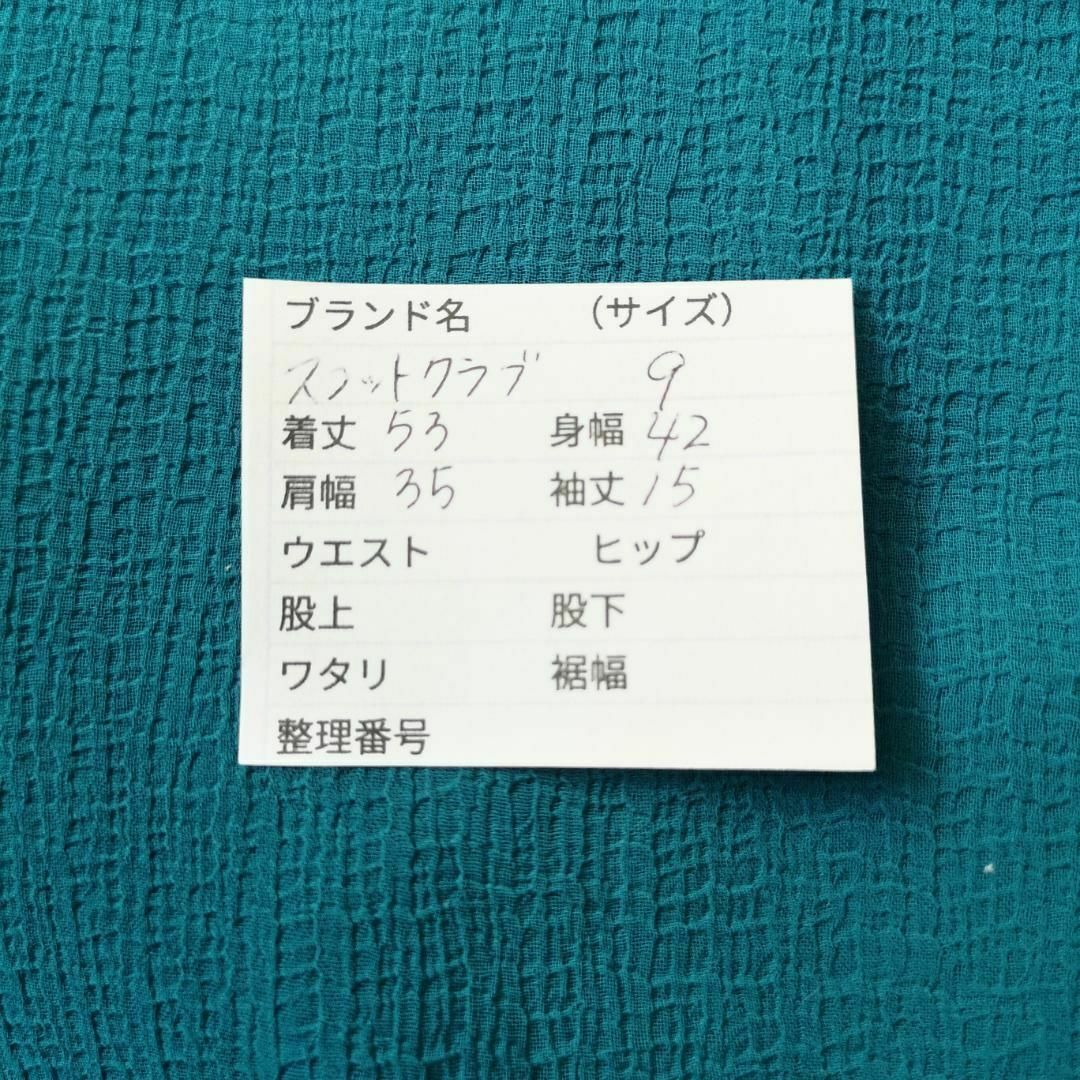 ブランド名 （サイズ）
スコットクラブ 9
着丈 53 身幅 42
肩幅 35 袖丈 15
ウエスト ヒップ
股上 股下
ワタリ 裾幅
整理番号